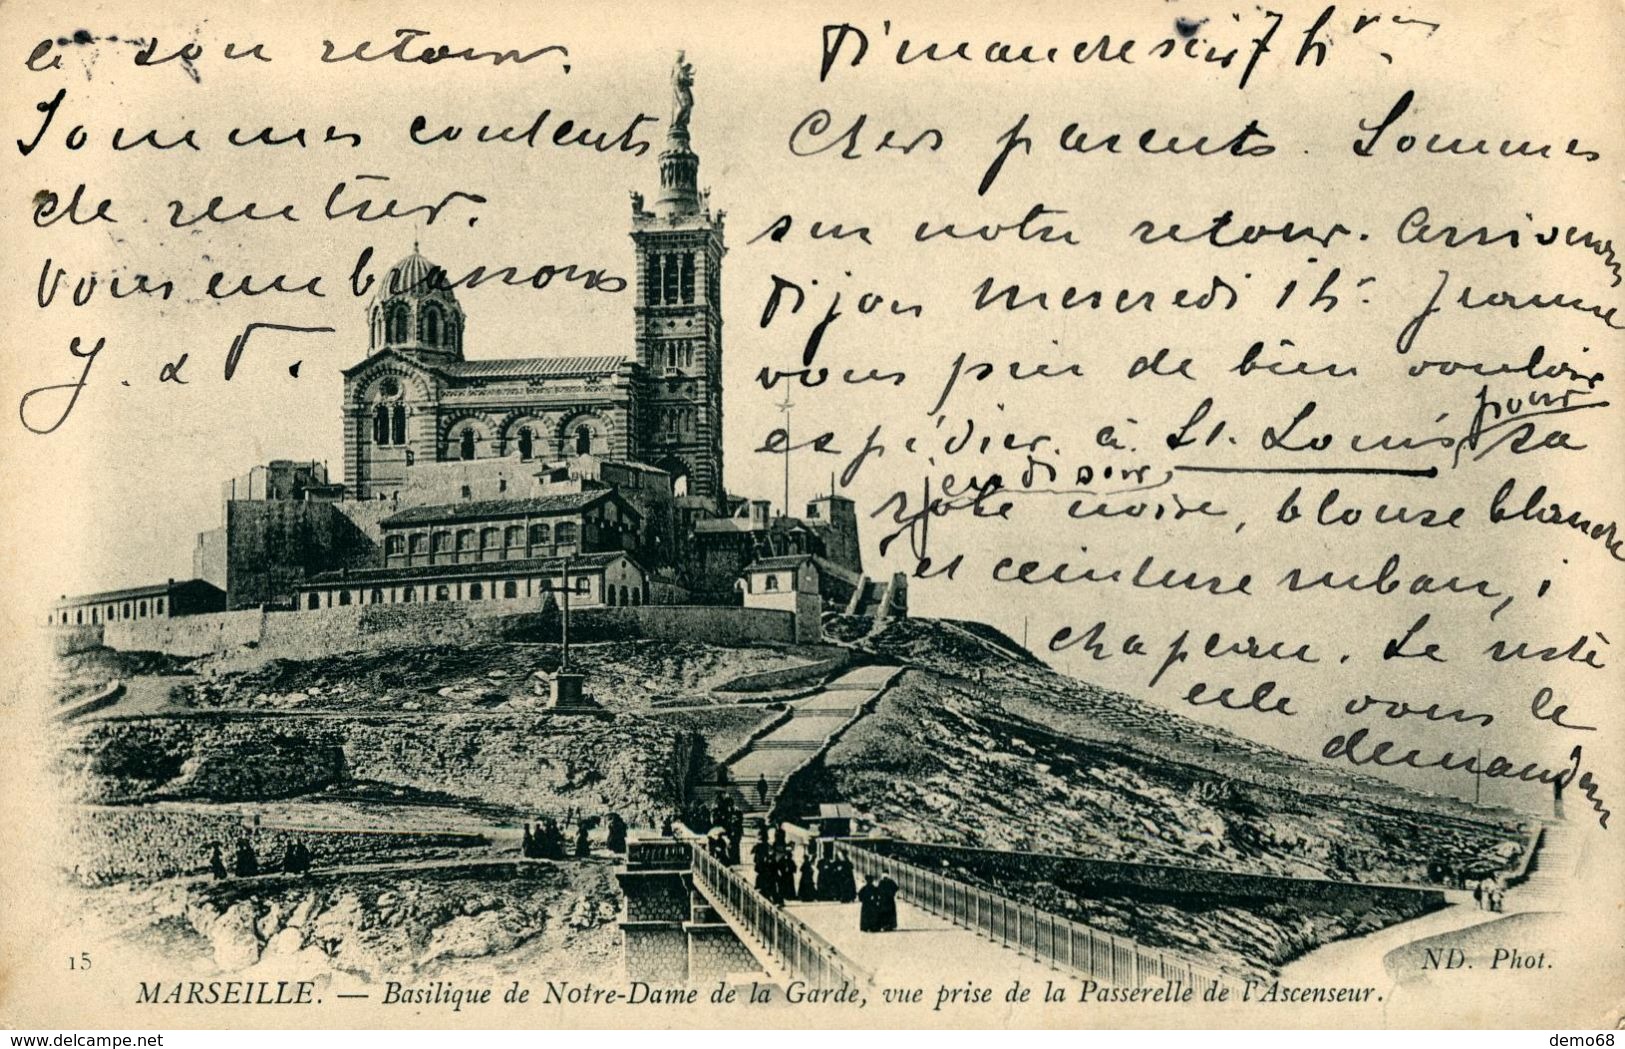 Dimanche soir 7 h
Chers parents. Sommes
sur notre retour. Arriverons
Dijon mercredi 1 h. Jeanne
vous prie de bien vouloir
expédier à St. Louis pour
jeudi soir, sa
robe noire, blouse blanche
et ceinture ruban,
chapeau. Le reste
elle vous le
demandera
à son retour.
Sommes contents
de rentrer.
Vous embrassons
J. & T.
15
ND. Phot.
MARSEILLE. — Basilique de Notre-Dame de la Garde, vue prise de la Passerelle de l'Ascenseur.
www.delcampe.net
demo68